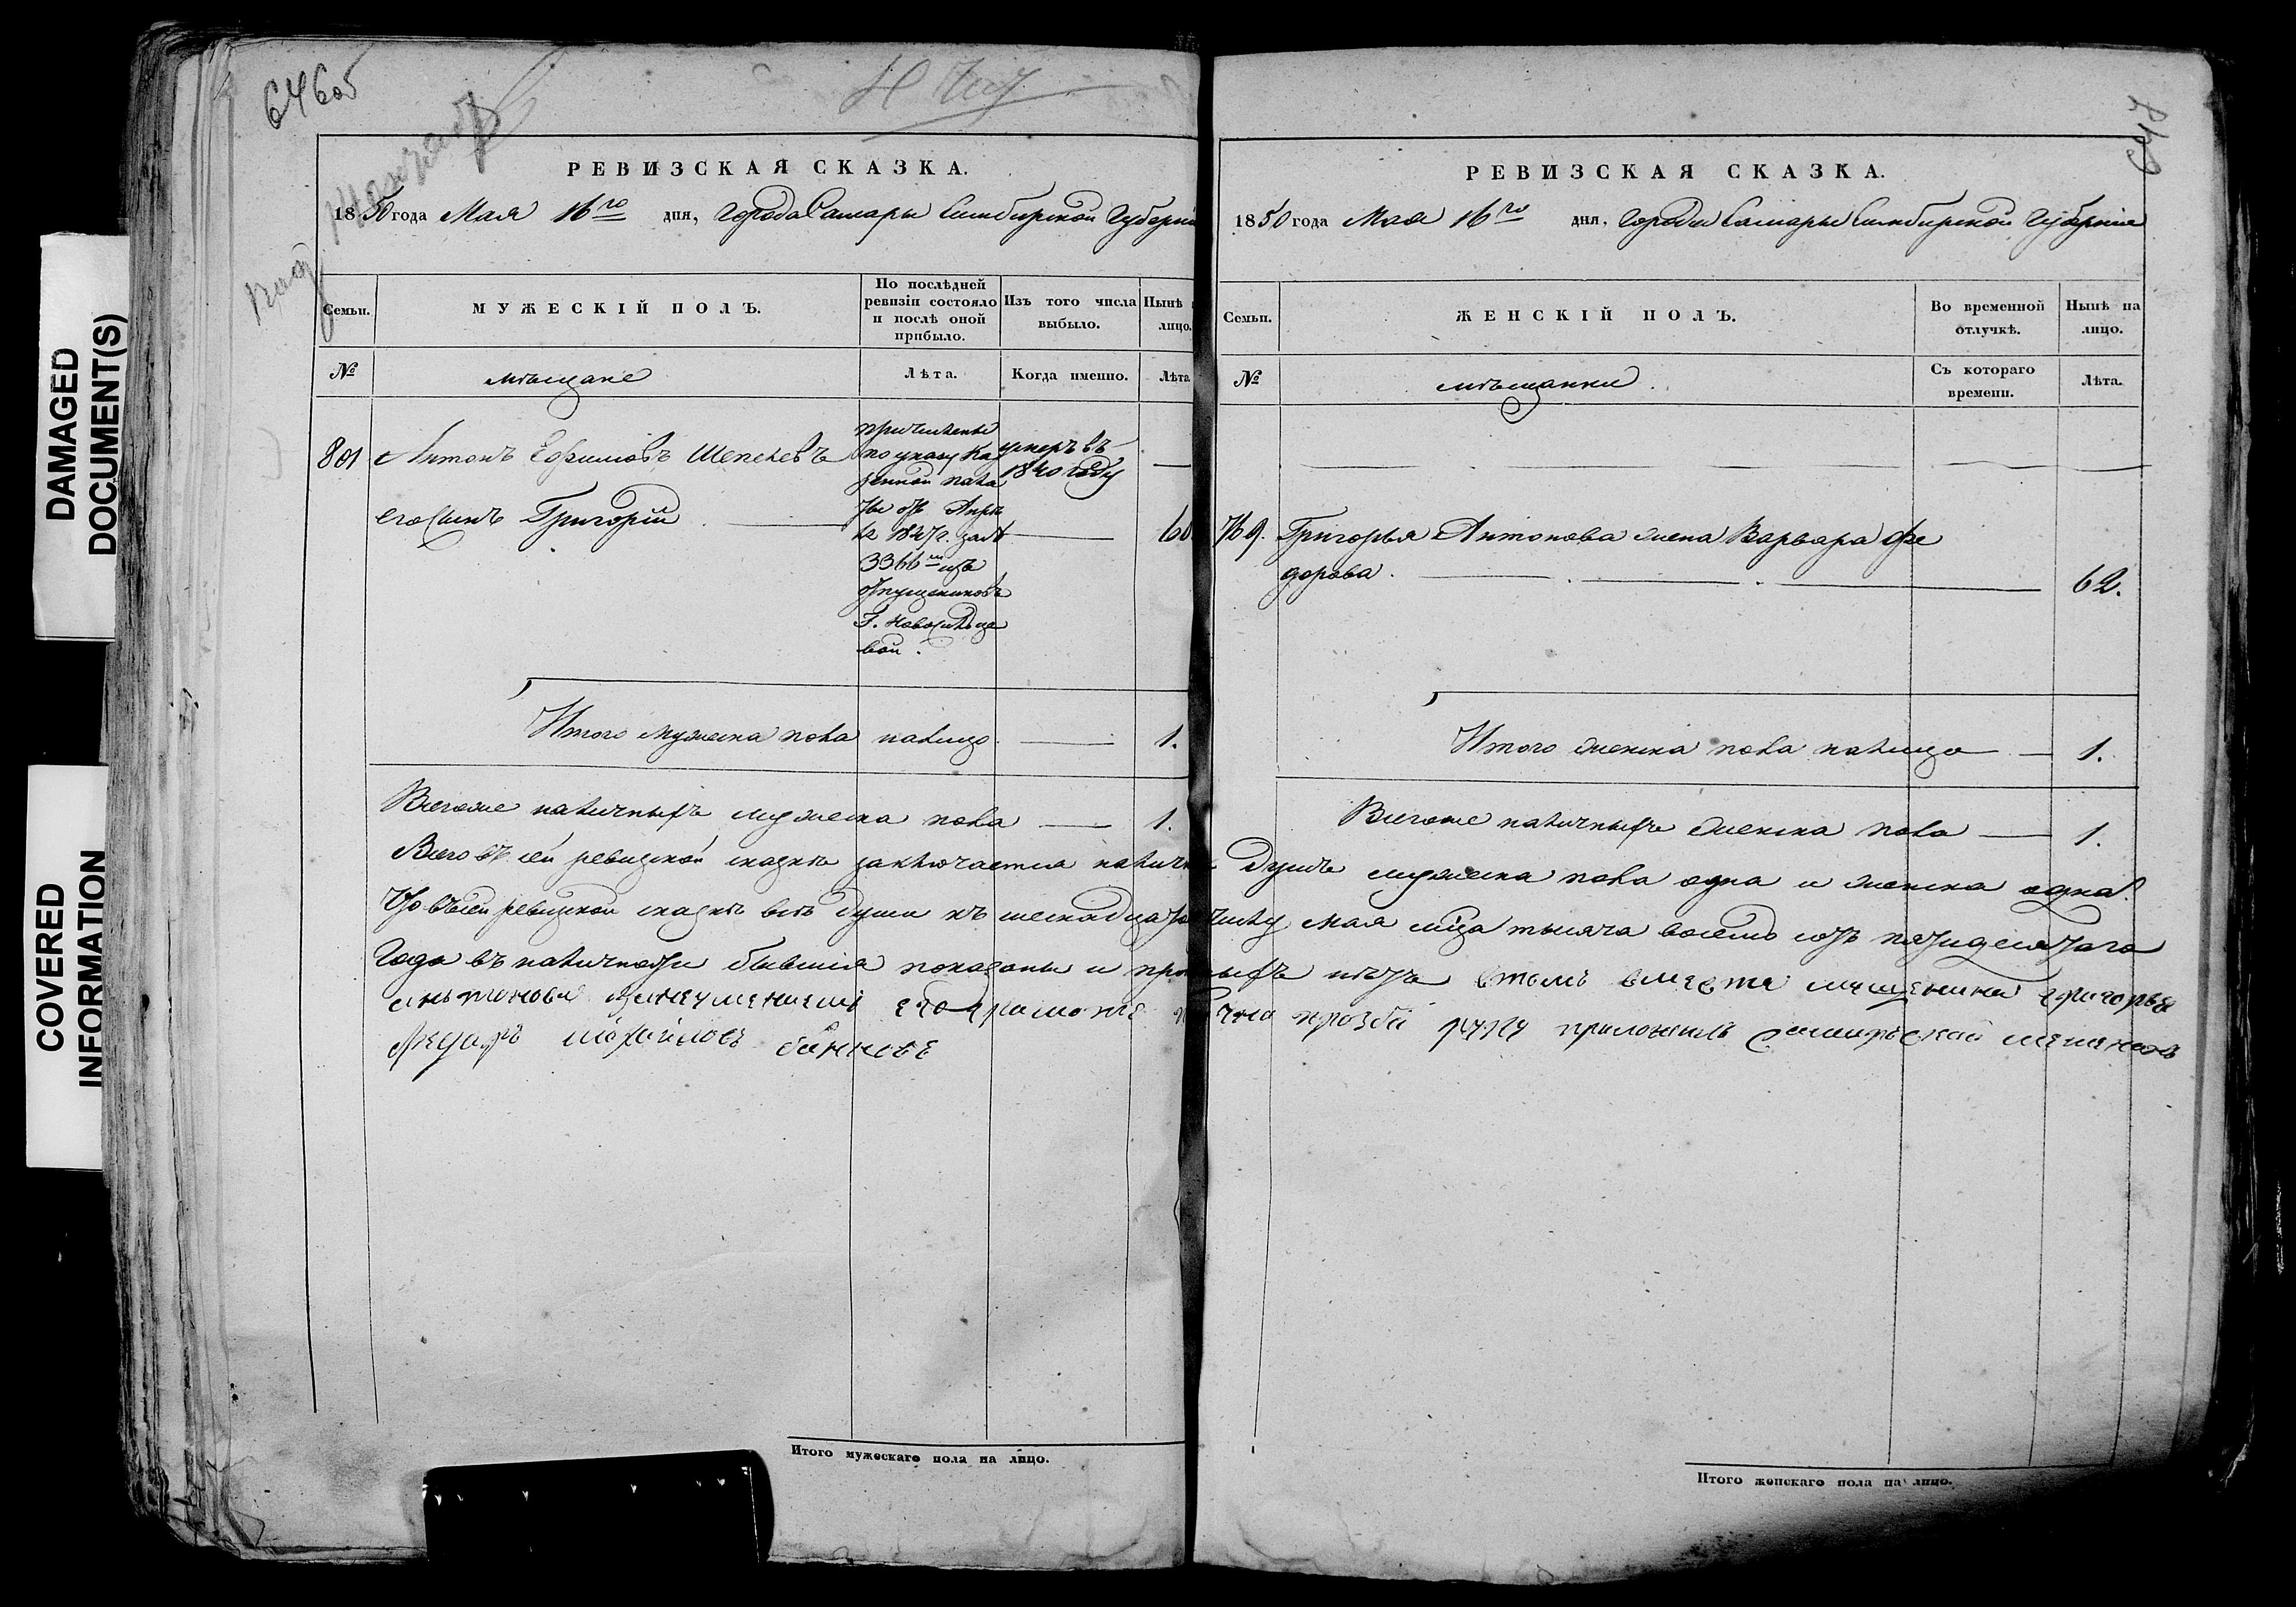 646об
647
РЕВИЗСКАЯ СКАЗКА.
1850 года Мая 16го дня, Города Самары Симбирской Губерні
Семьи.
МУЖЕСКІЙ ПОЛЪ.
По послѣдней ревизіи состояло и послѣ оной прибыло.
Изъ того числа выбыло.
Нынѣ
лицо.
№
мѣщане
Лѣта.
Когда именно.
Лѣта
801
Антонъ Ефимовъ Шепелевъ
причислены
по указу Ка
зенной пала
ты отъ Апрѣ
ля 1827 г. за №
3366м изъ
отпущениковъ
Г. Новосильце
вой.
умеръ въ
1840 году
его сынъ Григорій
60
Итого мужеска пола налицо 1.
Всегоже наличныхъ мужеска пола 1.
РЕВИЗСКАЯ СКАЗКА.
1850 года Мая 16го дня, Города Самары Симбирской Губерніи
Семьи.
ЖЕНСКІЙ ПОЛЪ.
Во временной отлучкѣ.
Нынѣ на лицо.
№
мѣщанки.
Съ котораго времени.
Лѣта.
769. Григорья Антонова жена Варвара Фе
дорова. 62.
Итого женска пола налицо 1.
Всегоже наличныхъ женска пола 1.
Всего въ сей ревизской сказкѣ заключается налич душъ мужеска пола одна и женска одна.
Что въ сей ревизской сказкѣ всѣ души къ шеснадца числу мая мца тысяча восемь сотъ пятидесятаго
Года въ наличности бывшія показаны и про ыхъ нѣтъ втомъ вместа мещенина григорья
антонова занеуменіемъ его грамоте прозби руку приложилъ самарской
Михаиловъ
Итого мужескаго пола на лицо.
Итого женскаго пола на лицо.